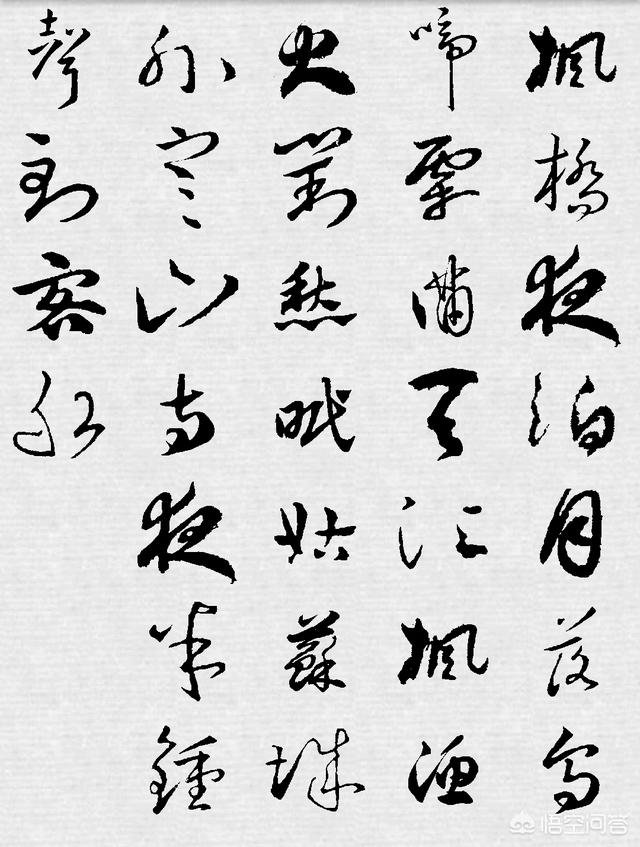 楓橋夜泊月落烏
啼霜滿天江楓漁
火對愁眠姑蘇城
外寒山寺夜半鍾
聲到客船
悟空问答